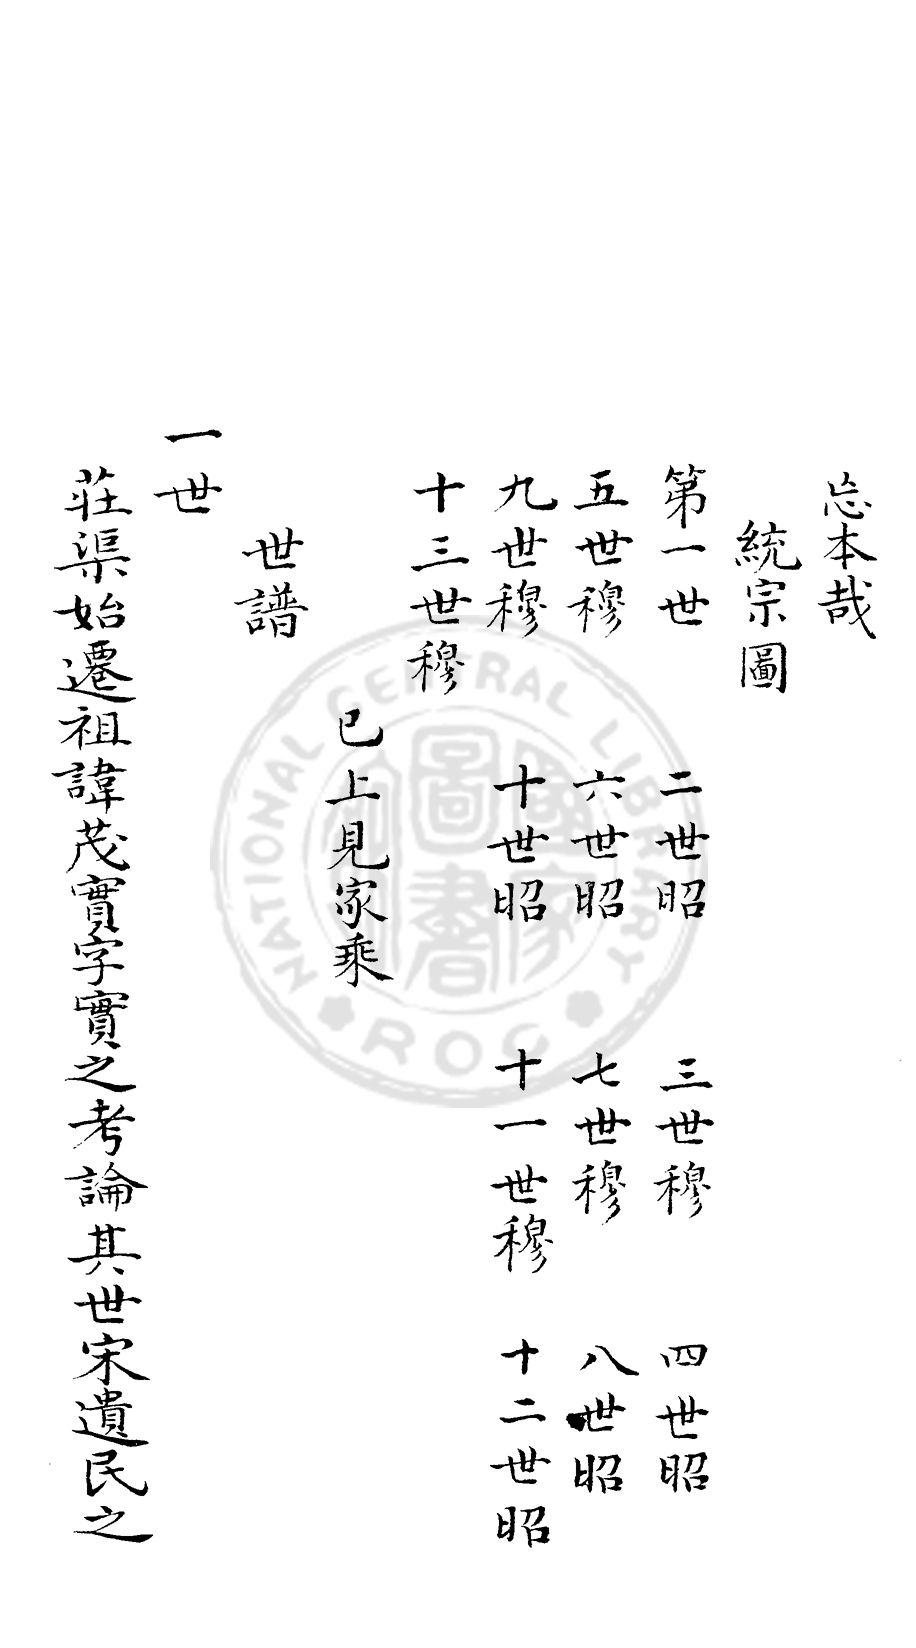 忘本哉
統宗圖
第一世 二世昭 三世穆 四世昭
五世穆 六世昭 七世穆 八世昭
九世穆 十世昭 十一世穆 十二世昭
十三世穆
已上見家乘
世譜
一世
莊渠始遷祖諱茂實字實之考論其世宋遺民之
NATIONAL CENTRAL LIBRARY
ROC
國家圖書館